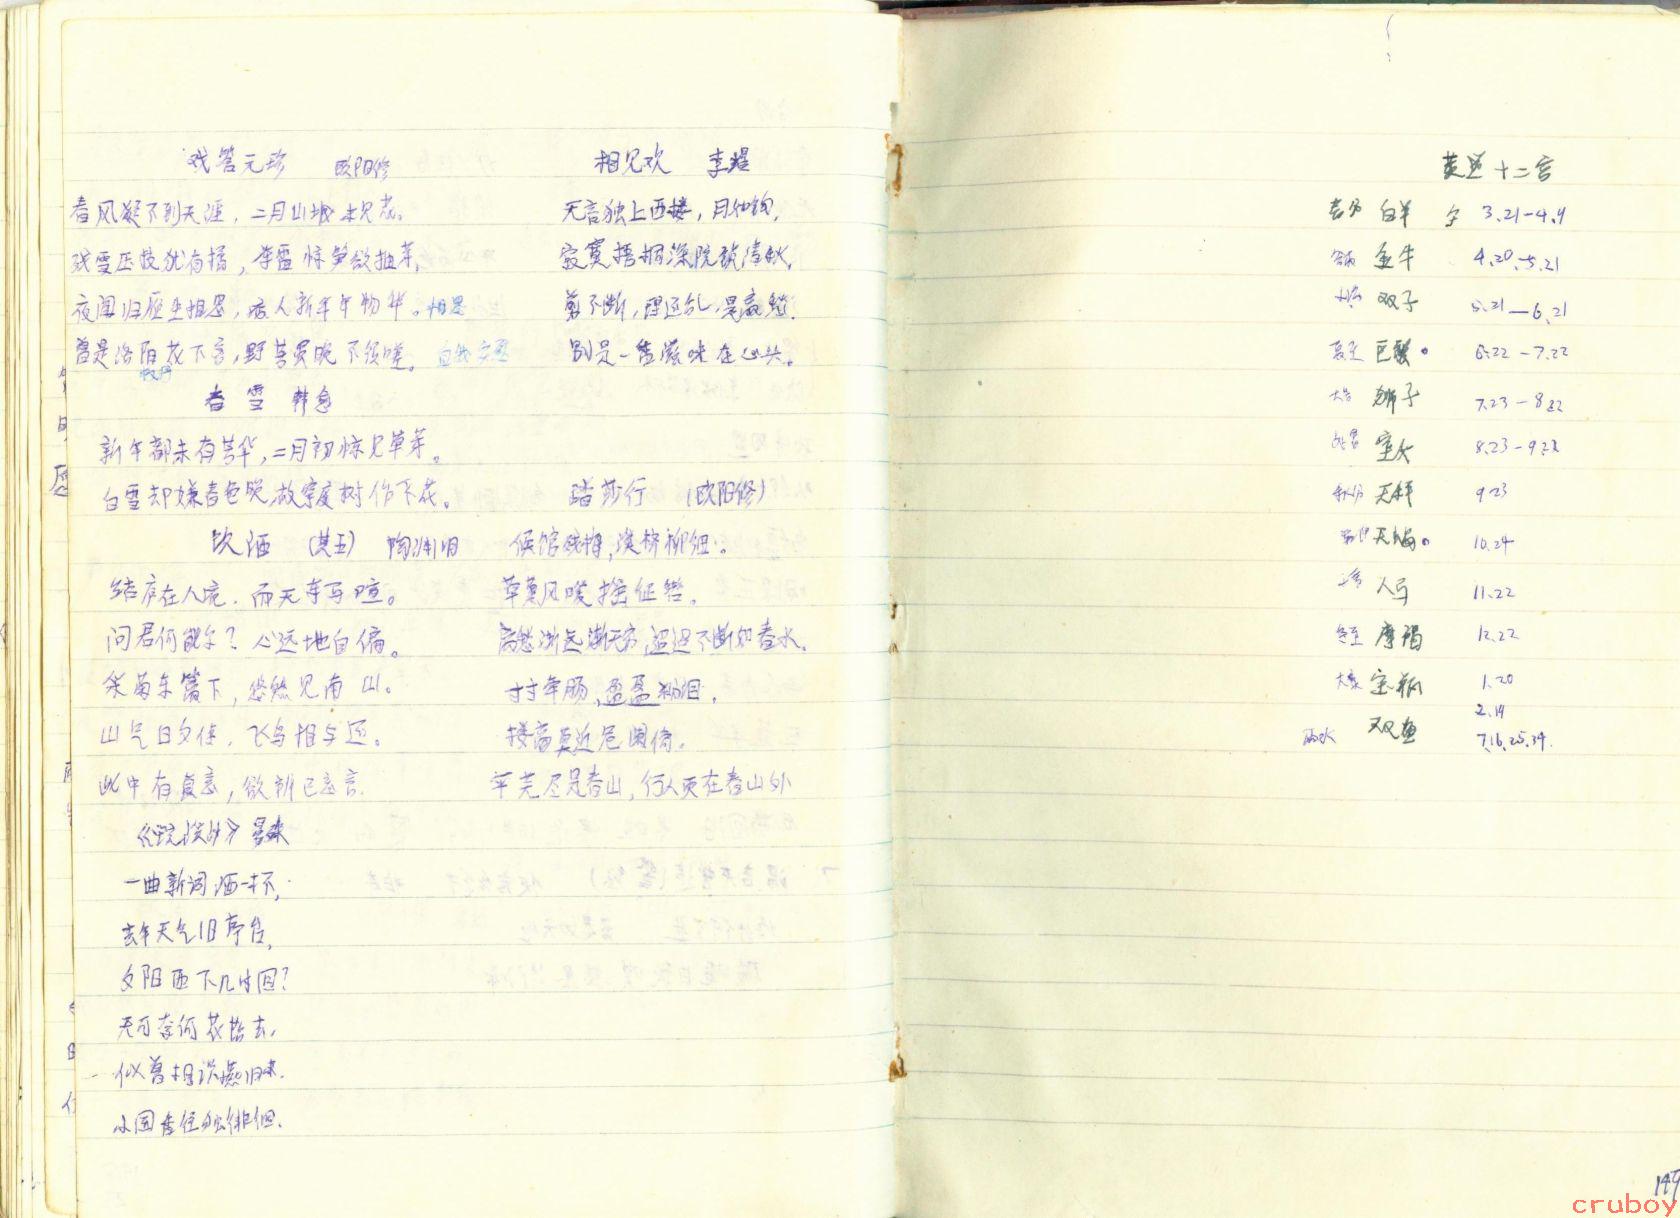 戏答元珍 欧阳修
春风疑不到天涯，二月山城未见花。
残雪压枝犹有橘，冻雷惊笋欲抽芽，
夜闻归雁生相思，病入新年年物华。相思
曾是洛阳花下客，野芳虽晚不须嗟。
牡丹
春雪 韩愈
新年都未有芳华，二月初惊见草芽。
白雪却嫌春色晚，故穿庭树作飞花。
饮酒 （其五） 陶渊明
结庐在人境，而无车马喧。
问君何能尔？心远地自偏。
采菊东篱下，悠然见南山。
山气日夕佳，飞鸟相与还。
此中有真意，欲辨已忘言.
《浣溪沙》 晏殊
一曲新词酒一杯，
去年天气旧亭台，
夕阳西下几时回？
无可奈何花落去，
似曾相识燕归来.
小园香径独徘徊.
相见欢 李煜
无言独上西楼，月如钩，
寂寞梧桐深院锁清秋，
剪不断，理还乱，是离愁.
别是一番滋味在心头。
踏莎行 （欧阳修）
候馆残梅，溪桥柳细。
草薰风暖摇征辔。
离愁渐远渐无穷，迢迢不断如春水。
寸寸柔肠，盈盈粉泪，
楼高莫近危阑倚。
平芜尽是春山，行人更在春山外
黄道十二宫
春分 白羊 3.21-4.19
谷雨 金牛 4.20-5.21
小满 双子 5.21—6.21
夏至 巨蟹 6.22-7.22
大暑 狮子 7.23-8.22
处暑 室女 8.23-9.22
秋分 天秤 9.23
霜降 天蝎 10.24
小雪 人马 11.22
冬至 摩羯 12.22
大寒 宝瓶 1.20
2.19
雨水 双鱼 7.16.25.34.
149
cruboy